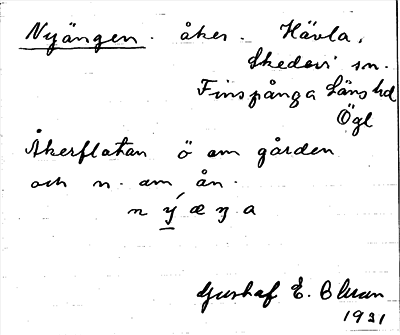 Nyängen. åker. Hävla,
Skedevi sn.
Finspånga Läns hd
Ögl
Åkerflatan ö om gården
och n. om ån.
Gustaf E.
1931